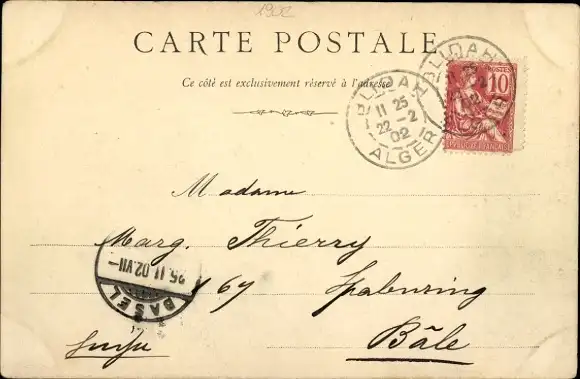 1902
CARTE POSTALE
Ce côté est exclusivement réservé à l'adresse
BLIDAH
11 25
22 -2
02
ALGER
BLIDAH
POSTES
10
Madame
Marg. Thierry
167 Spalenring
Bâle
25. II. 02. VII-
BASEL